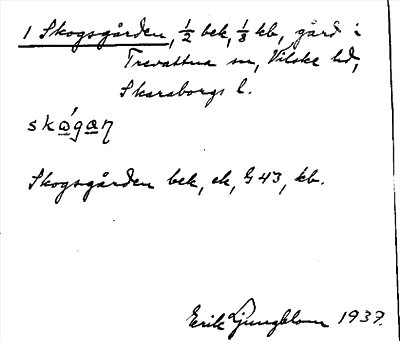 1 Skogsgården, 1/2 bek, 1/8 kb, gård i
Trevattna sn, Vilske hd,
Skaraborgs l.
skǿgan
Skogsgården bek, ek, G 43, kb.
Erik Ljungblom 1937.